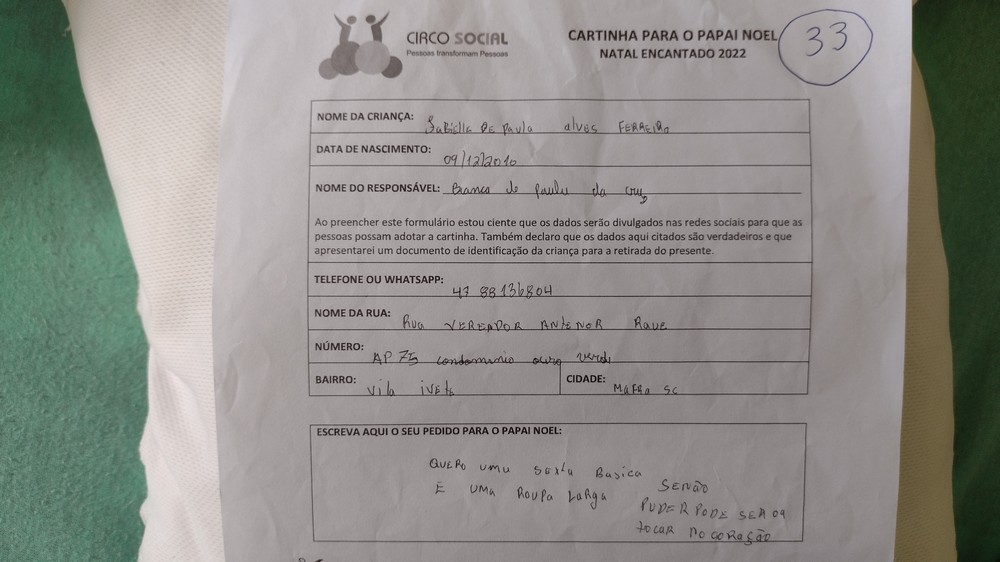 CIRCO SOCIAL
Pessoas transformam Pessoas
CARTINHA PARA O PAPAI NOEL
NATAL ENCANTADO 2022
33
NOME DA CRIANÇA: DE PAULA alves FERREIRA
DATA DE NASCIMENTO: 09/12/2010
NOME DO RESPONSÁVEL: Bianca de Paula da cruz
Ao preencher este formulário estou ciente que os dados serão divulgados nas redes sociais para que as
pessoas possam adotar a cartinha. Também declaro que os dados aqui citados são verdadeiros e que
apresentarei um documento de identificação da criança para a retirada do presente.
TELEFONE OU WHATSAPP: 47 88136804
NOME DA RUA: Rua VEREADOR ANTENOR
NÚMERO: AP 75 condominio ouro verde
BAIRRO: Vila ivete CIDADE: MAFRA SC
ESCREVA AQUI O SEU PEDIDO PARA O PAPAI NOEL:
QUERO uma sexta Basica
E UMA ROUPA LARGA SENão
PUDER PODE SER Oq
tocar no coração